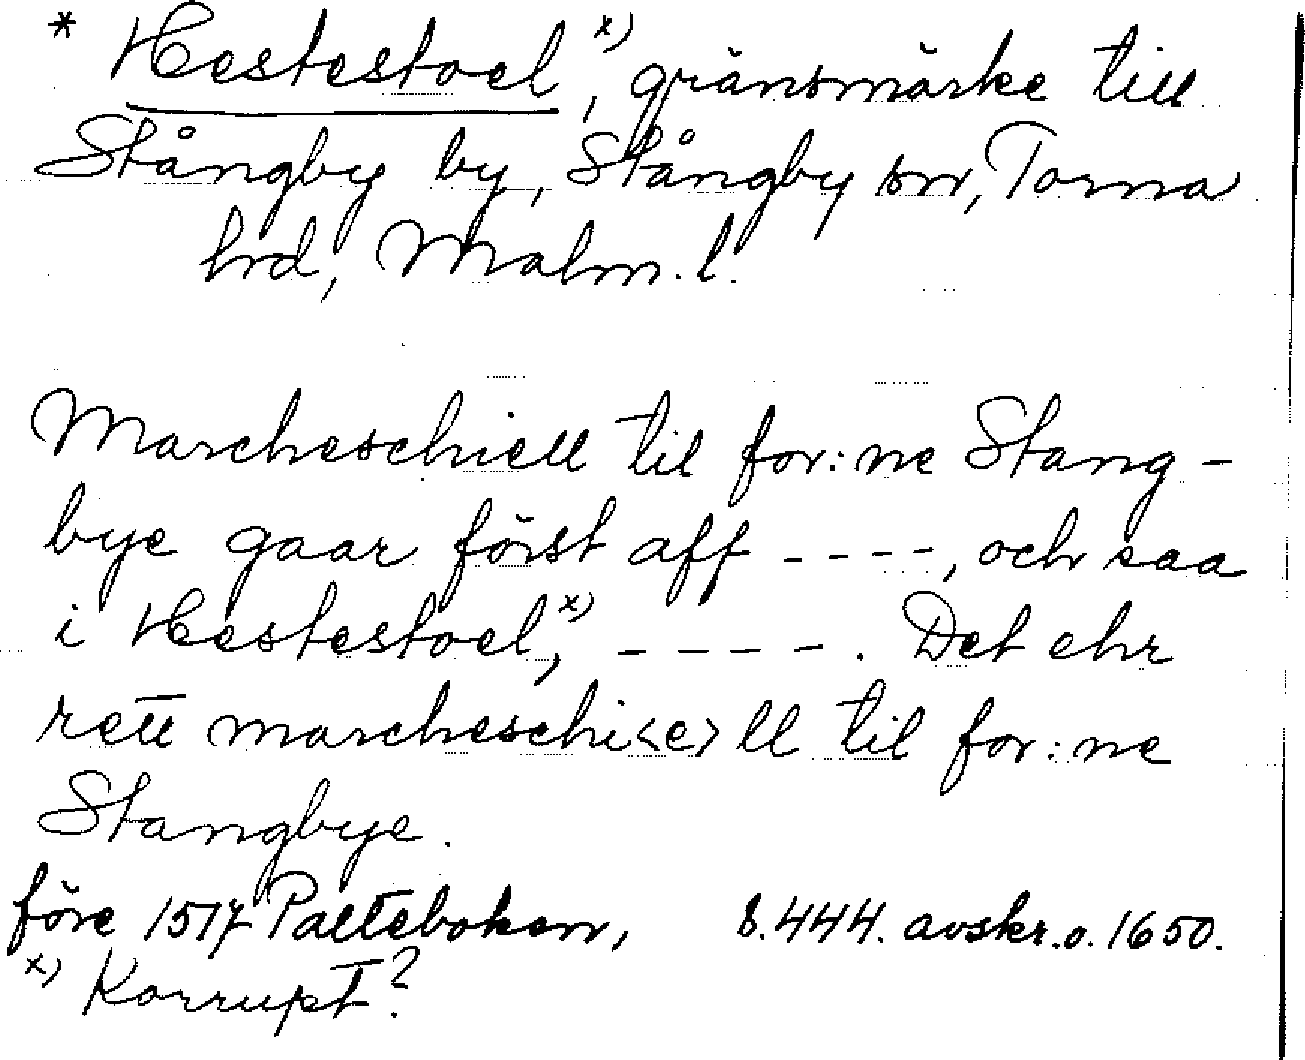 * Hestestoel x), gränsmärke till
Stångby by, Stångby sn, Torna
hrd, Malm. l.
Marcheschiell til for:ne Stang-
bye gaar först aff ----, och saa
i Hestestoel, x) ----. Det ehr
rett marcheschi<e>ll til for:ne
Stangbye.
före 1517 Palteboken, s. 444. avskr. o. 1650.
x) Korrupt?